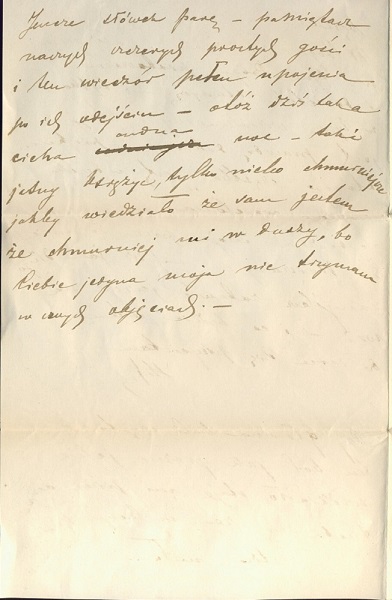 Jeszcze słówek parę – pamiętasz
naszych szczerych prostych gości
i ten wieczór pełen upojenia
po ich odejściu – otóż dziś taka
cicha cudna noc – taki
jasny księżyc, tylko niebo chmurniejsze
jakby wiedziało że sam jestem
że chmurniej mi w duszy, bo
Ciebie jedyna moja nie trzymam
w mych objęciach. –